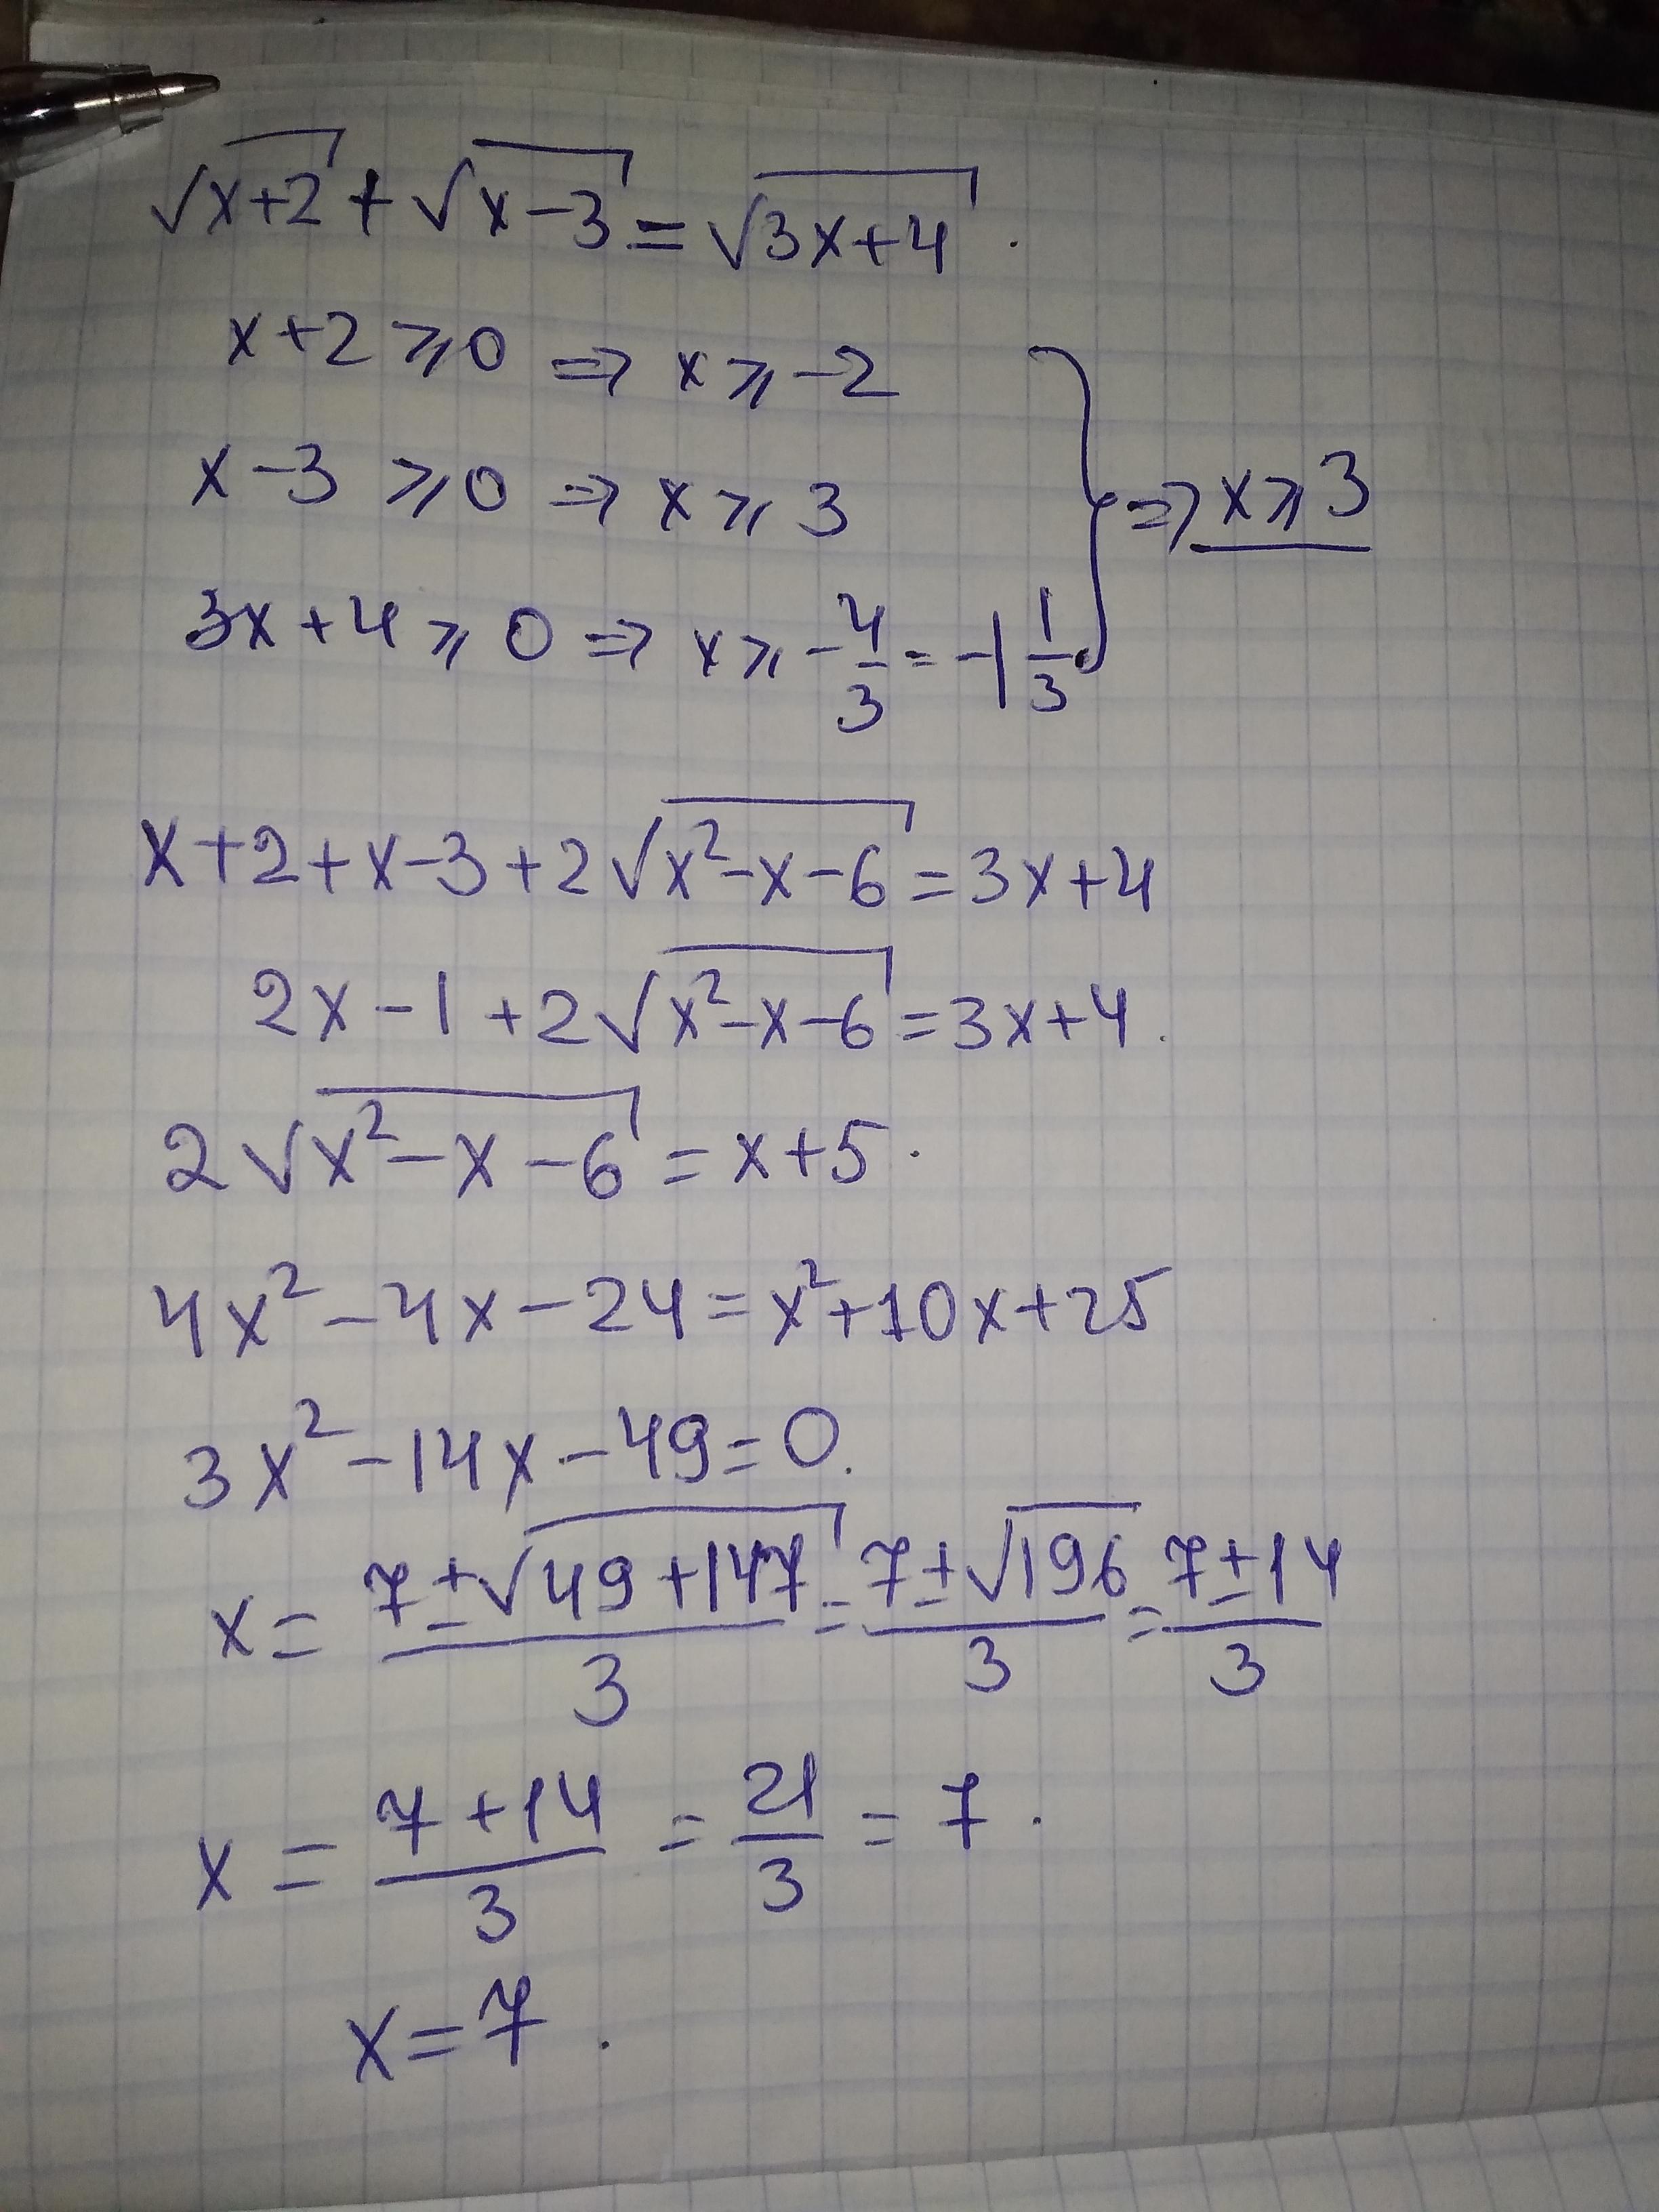 √(x+2) + √(x-3) = √(3x+4) .
x+2 ⩾ 0 ⇒ x ⩾ -2
x-3 ⩾ 0 ⇒ x ⩾ 3 } ⇒ x ⩾ 3
3x+4 ⩾ 0 ⇒ x ⩾ -4/3 = -1 1/3
x+2+x-3+2√(x²-x-6) = 3x+4
2x-1+2√(x²-x-6) = 3x+4 .
2√(x²-x-6) = x+5 .
4x²-4x-24 = x²+10x+25
3x²-14x-49 = 0 .
x = (7±√(49+147))/3 = (7±√196)/3 = (7±14)/3
x = (7+14)/3 = 21/3 = 7 .
x = 7 .